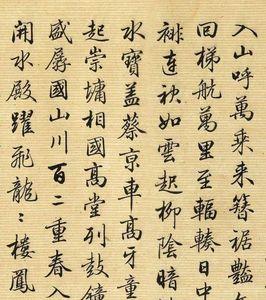 入山呼萬乘来簪裾豔
回梯航萬里至輻輳日中
連袂如雲起柳陰暗
水寶盖蔡京車髙牙童
起崇墉相國髙堂列鼓鐘
盛孱國山川百二重春入
開水殿躍飛龍〻樓鳳